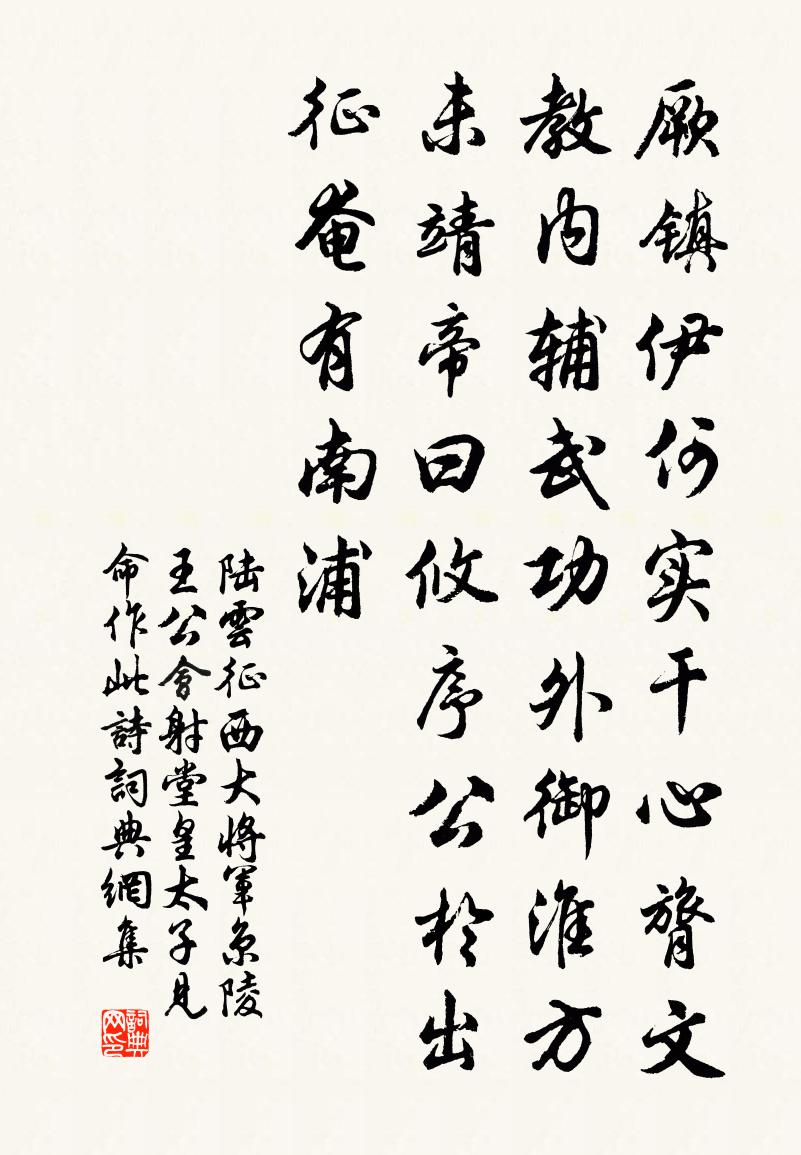 厥镇伊何实干心膂文
教内辅武功外御淮方
未靖帝曰攸序公於出
征奄有南浦
陆雲征西大将軍京陵
王公會射堂皇太子見
命作此詩詞典網集
詞典网印